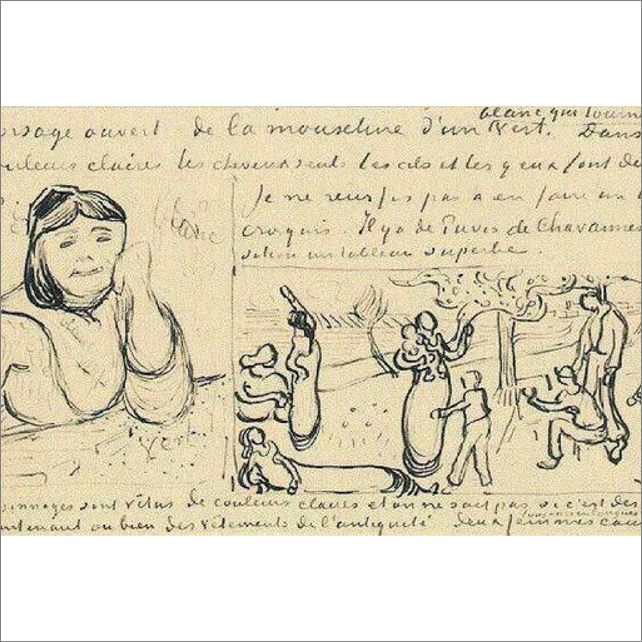 blanc qui tourn
orsage ouvert de la mousseline d'un vert. Dans
ouleurs claires les cheveux seuls les cils et les yeux font de
Je ne reussis pas a en faire un
blanc
croquis. Il y a de Puvis de Chavannes
salon un tableau superbe.
vert
sonnages sont vêtus de couleurs claires et on ne sait pas si c'est des
aussi en longues
ntenant ou bien des vêtements de l'antiquité deux femmes cau